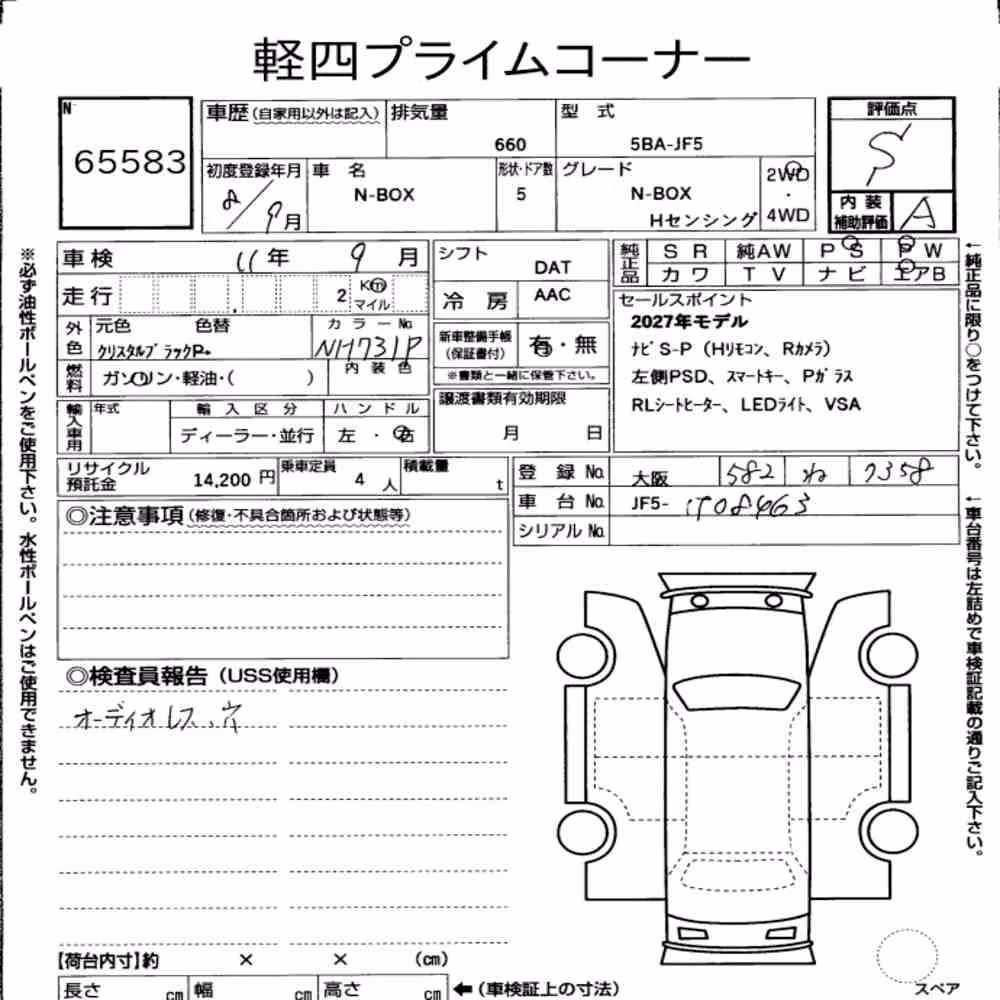 軽四プライムコーナー
N
65583
車歴 (自家用以外は記入)
排気量
660
型 式
5BA-JF5
評価点
S
初度登録年月
8/9月
車 名
N-BOX
形状・ドア数
5
グレード
N-BOX
Hセンシング
2WD
・
4WD
内 装
補助評価
A
車検 11年 9月
走行 2 Km
マイル
外色
元色 色替
クリスタルブラックP+
カラーNo.
NH731P
燃料
ガソリン・軽油・( )
内装色
輸入車用
年式
輸入区分
ディーラー・並行
ハンドル
左・右
シフト
DAT
冷房
AAC
新車整備手帳
(保証書付)
有・無
※書類と一緒に保管下さい。
譲渡書類有効期限
月 日
純正品
SR 純AW PS PW
カワ TV ナビ エアB
セールスポイント
2027年モデル
ナビS-P(Hリモコン、Rカメラ)
左側PSD、スマートキー、Pガラス
RLシートヒーター、LEDライト、VSA
リサイクル
預託金
14,200円
乗車定員
4人
積載量
t
登録No. 大阪 582 ね 7358
車台No. JF5- 1708463
シリアルNo.
◎注意事項(修復・不具合箇所および状態等)
◎検査員報告(USS使用欄)
オーディオレス、穴
【荷台内寸】約 × × (cm)
長さ cm 幅 cm 高さ cm ←(車検証上の寸法)
スペア
※必ず油性ボールペンをご使用下さい。水性ボールペンはご使用できません。
←純正品に限り○をつけて下さい。
←車台番号は左詰めで車検証記載の通りご記入下さい。